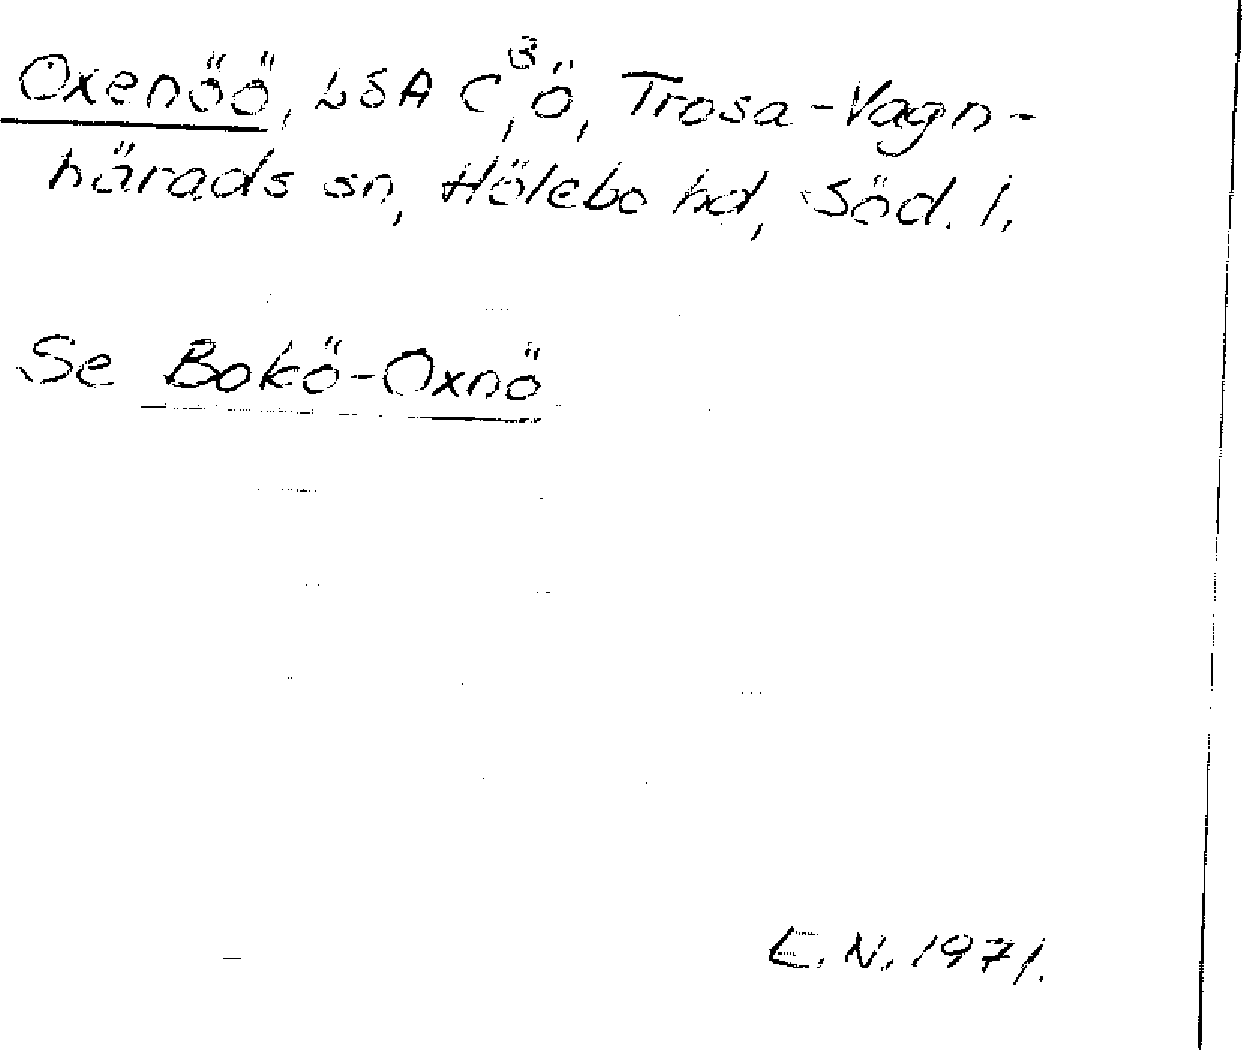 Oxenöö, LSA C³, ö, Trosa-Vagn-
härads sn, Hölebo hd, Söd. l.
Se Bokö-Oxnö
E.N. 1971.